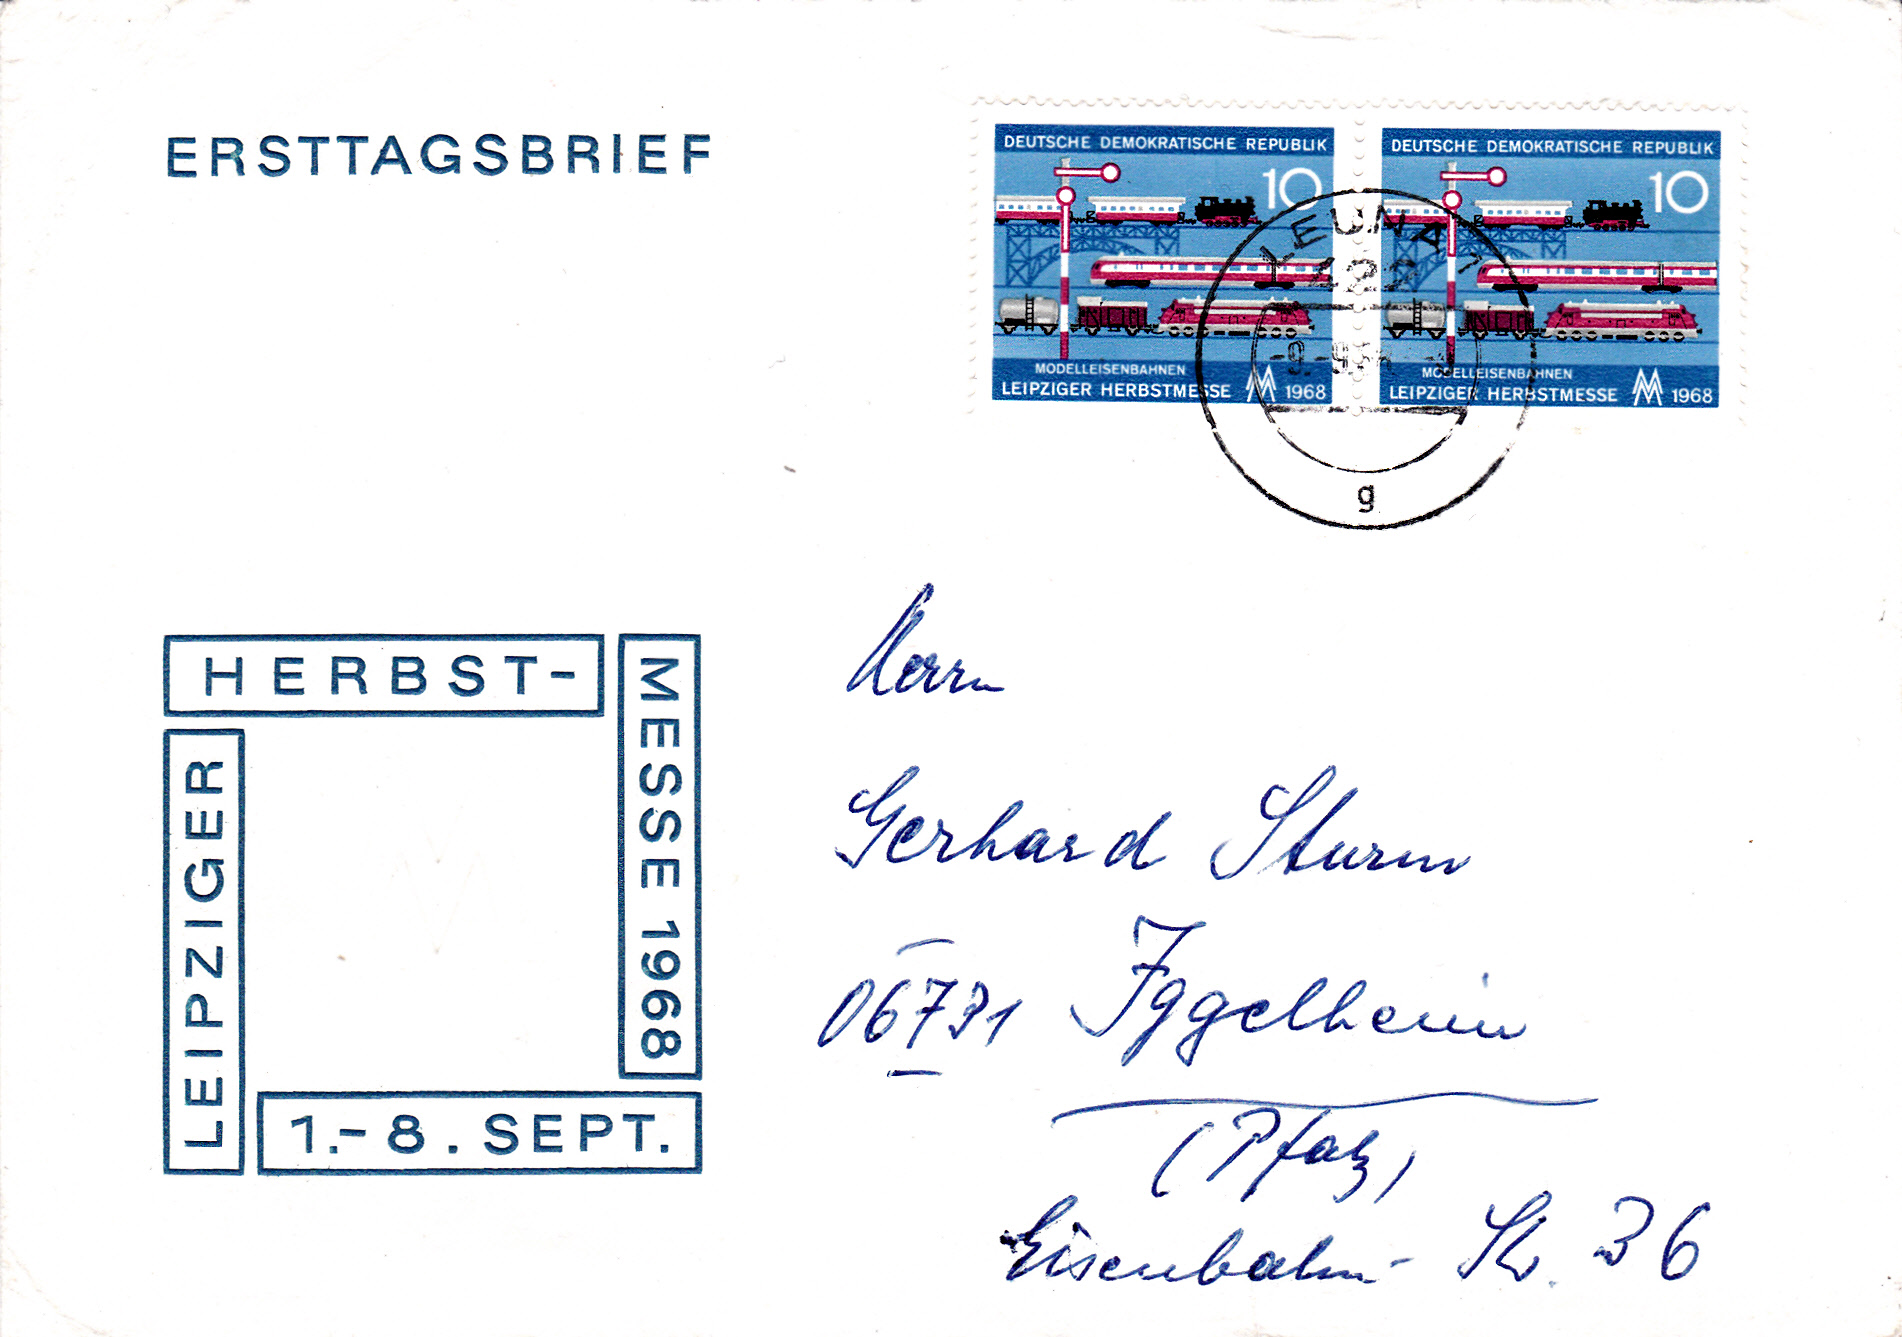 ERSTTAGSBRIEF
DEUTSCHE DEMOKRATISCHE REPUBLIK
10
MODELLEISENBAHNEN
LEIPZIGER HERBSTMESSE MM 1968
DEUTSCHE DEMOKRATISCHE REPUBLIK
10
MODELLEISENBAHNEN
LEIPZIGER HERBSTMESSE MM 1968
LEUNA 1
422
-9.-9.
g
LEIPZIGER
HERBST-
MESSE 1968
1.-8. SEPT.
Herrn
Gerhard Sturm
06731 Iggelheim
(Pfalz)
Eisenbahn-Str. 36